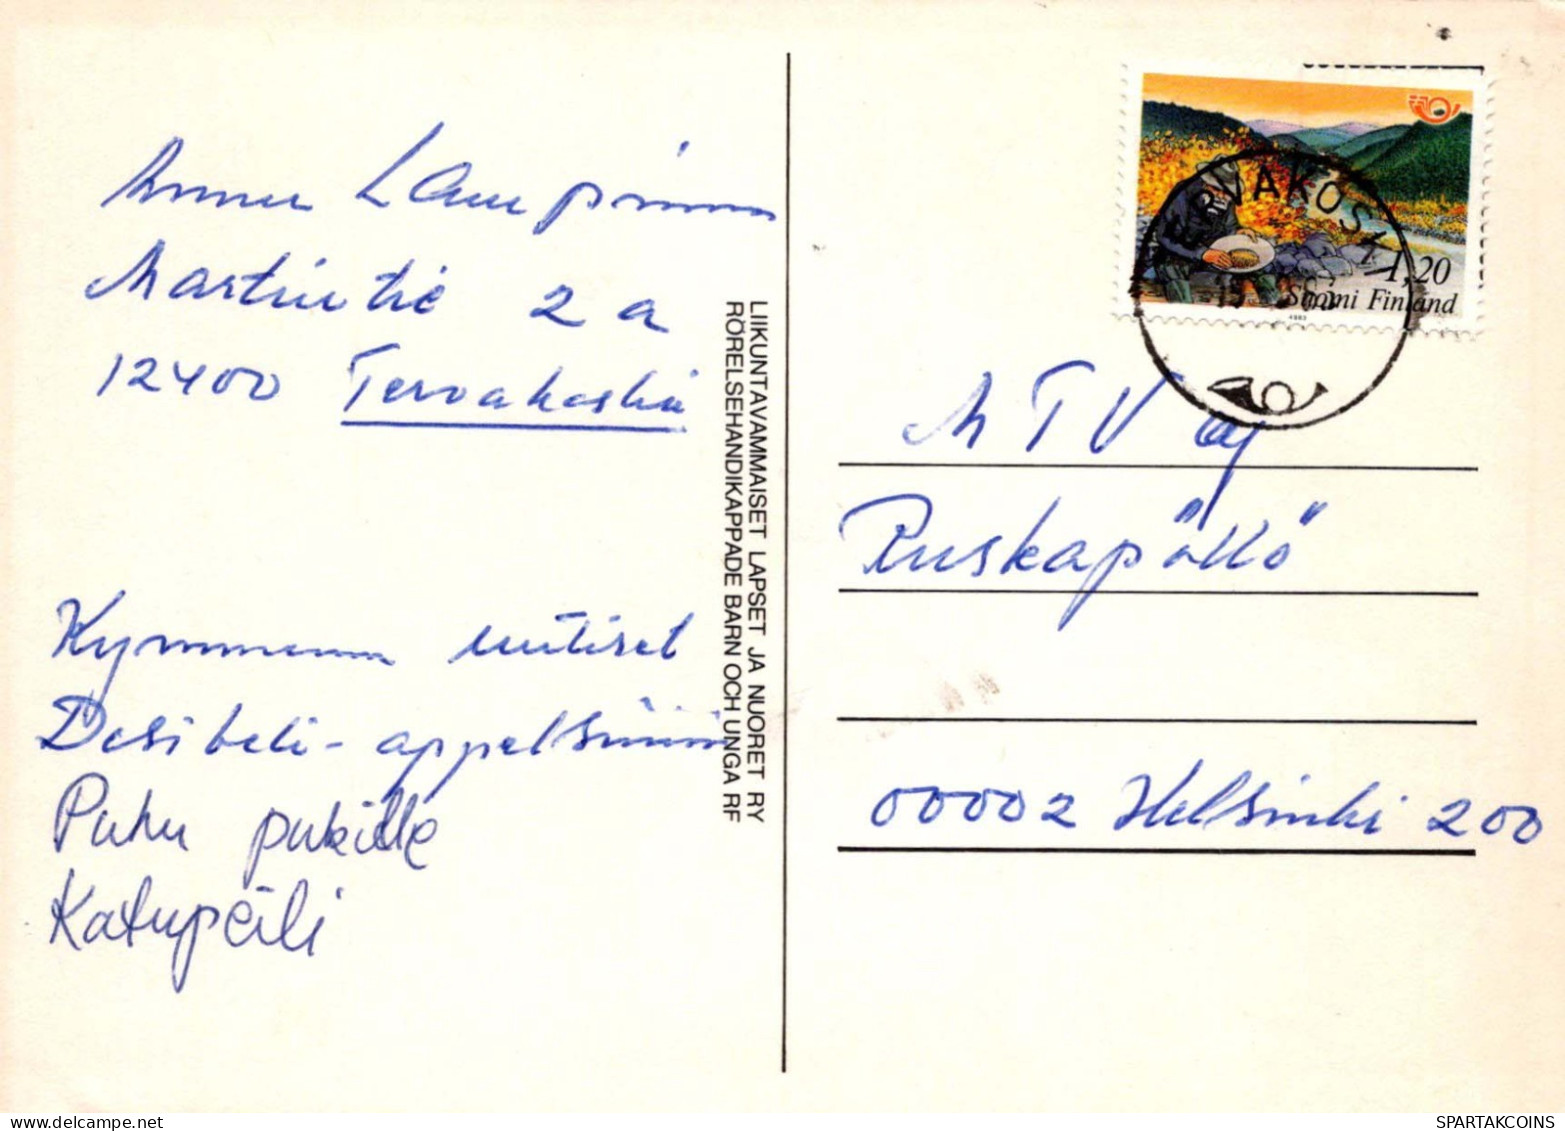 Lampinen
Martintie 2a
12400 Tervakoski
Kymmenen uutiset
Desibeli - appelsiini
Puhu pukille
Katupeili
LIIKUNTAVAMMAISET LAPSET JA NUORET RY
RÖRELSEHANDIKAPPADE BARN OCH UNGA RF
1,20
Suomi Finland
1983
TERVAKOSKI
MTV oy
Ruskapöllö
00002 Helsinki 200
SPARTAKCOINS
delcampe.net